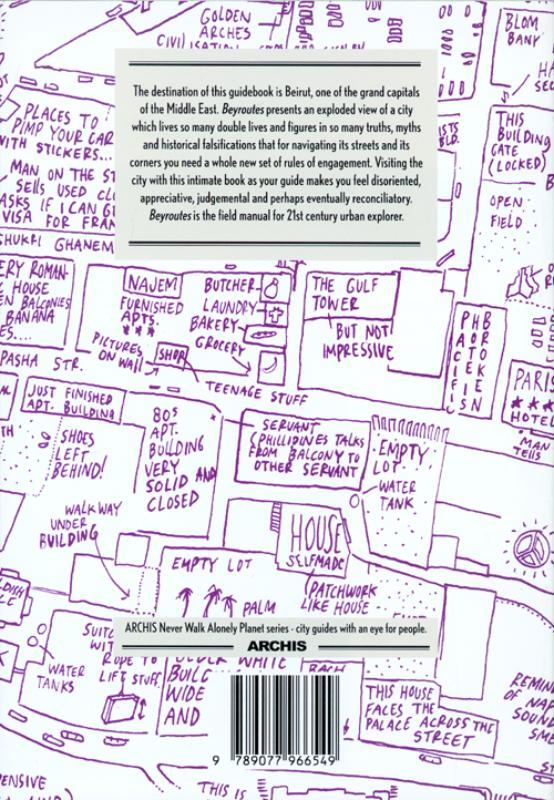 GOLDEN
ARCHES
BLOM
BANK
The destination of this guidebook is Beirut, one of the grand capitals
of the Middle East. Beyroutes presents an exploded view of a city
which lives so many double lives and figures in so many truths, myths
and historical falsifications that for navigating its streets and its
corners you need a whole new set of rules of engagement. Visiting the
city with this intimate book as your guide makes you feel disoriented,
appreciative, judgemental and perhaps eventually reconciliatory.
Beyroutes is the field manual for 21st century urban explorer.
PLACES TO
PIMP YOUR CAR
WITH STICKERS...
MAN ON THE ST
SELLS USED CL
ASKS IF I CAN G
VISA FOR FRAN
SHUKRI GHANEM
THIS
BUILDING
GATE
(LOCKED)
OPEN
FIELD
ERY ROMAN-
HOUSE
EN BALCONIES
BANANA
ES....
PASHA STR.
NAJEM
FURNISHED
APTS.
***
PICTURES
ON WALL
SHOP
BUTCHER
LAUNDRY
BAKERY
GROCERY
TEENAGE STUFF
THE GULF
TOWER
BUT NOT
IMPRESSIVE
PACIFIS
PHOTO
BROKEN
PARIS
***
HOTEL
MAN
TELLS
JUST FINISHED
APT. BUILDING
SHOES
LEFT
BEHIND!
80s
APT.
BUILDING
VERY
SOLID AND
CLOSED
SERVANT
(PHILLIPINES TALKS
FROM BALCONY TO
OTHER SERVANT
EMPTY
LOT
WATER
TANK
WALKWAY
UNDER
BUILDING
HOUSE
SELFMADE
EMPTY LOT
PALM
PATCHWORK
LIKE HOUSE
ARCHIS Never Walk Alonely Planet series - city guides with an eye for people.
ARCHIS
WATER
TANKS
SUITC
WIT
ROPE TO
LIFT STUFF
WHITE
BUILG
WIDE
AND
THIS HOUSE
FACES THE
PALACE ACROSS THE
STREET
REMIN
OF NA
SOUN
SME
9 789077 966549
PENSIVE
THIS IS